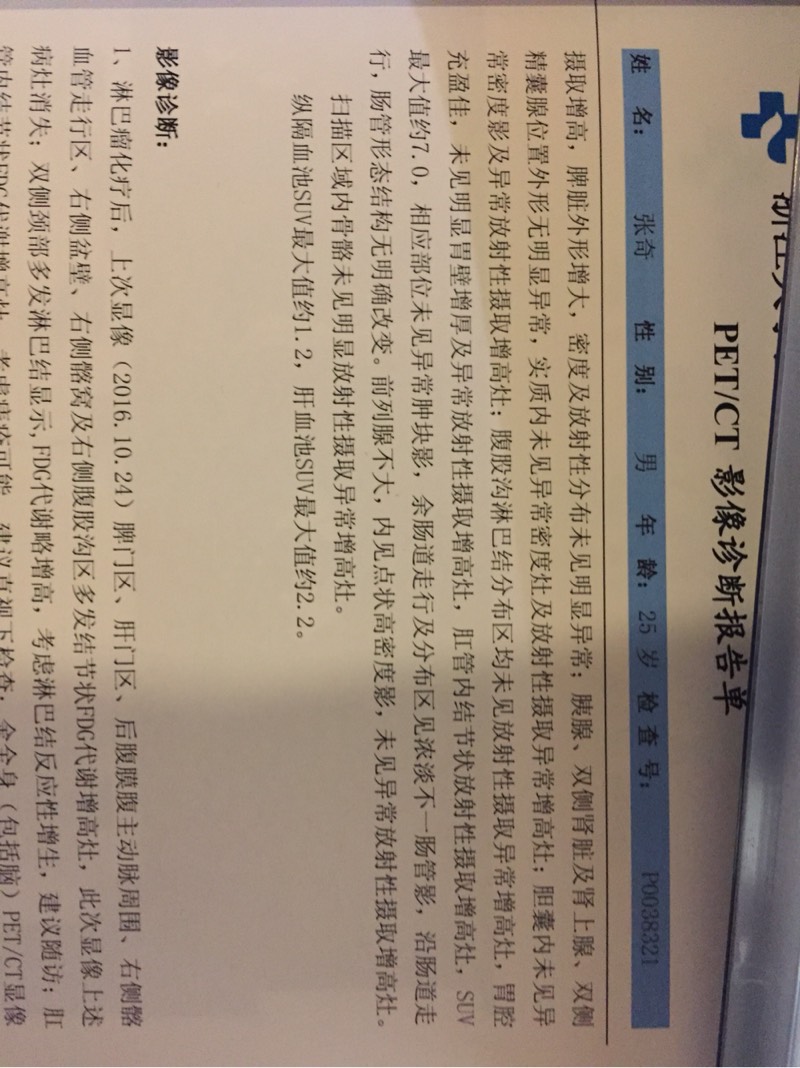 PET/CT 影像诊断报告单
姓 名: 张奇 性 别: 男 年 龄: 25 岁 检 查 号: P0038321
摄取增高，脾脏外形增大，密度及放射性分布未见明显异常；胰腺、双侧肾脏及肾上腺、双侧
精囊腺位置外形无明显异常，实质内未见异常密度灶及放射性摄取异常增高灶；胆囊内未见异
常密度影及异常放射性摄取增高灶；腹股沟淋巴结分布区均未见放射性摄取异常增高灶，胃腔
充盈佳，未见明显胃壁增厚及异常放射性摄取增高灶，肛管内结节状放射性摄取增高灶，SUV
最大值约7.0，相应部位未见异常肿块影，余肠道走行及分布区见浓淡不一肠管影，沿肠道走
行，肠管形态结构无明确改变。前列腺不大，内见点状高密度影，未见异常放射性摄取增高灶。
扫描区域内骨骼未见明显放射性摄取异常增高灶。
纵隔血池SUV最大值约1.2，肝血池SUV最大值约2.2。
影像诊断：
1、淋巴瘤化疗后，上次显像（2016.10.24）脾门区、肝门区、后腹膜腹主动脉周围、右侧髂
血管走行区、右侧盆壁、右侧髂窝及右侧腹股沟区多发结节状FDG代谢增高灶，此次显像上述
病灶消失；双侧颈部多发淋巴结显示,FDG代谢略增高，考虑淋巴结反应性增生，建议随访；肛
管内结节状FDG代谢增高灶，考虑痔疮可能，建议直视下检查，余全身（包括脑）PET/CT显像